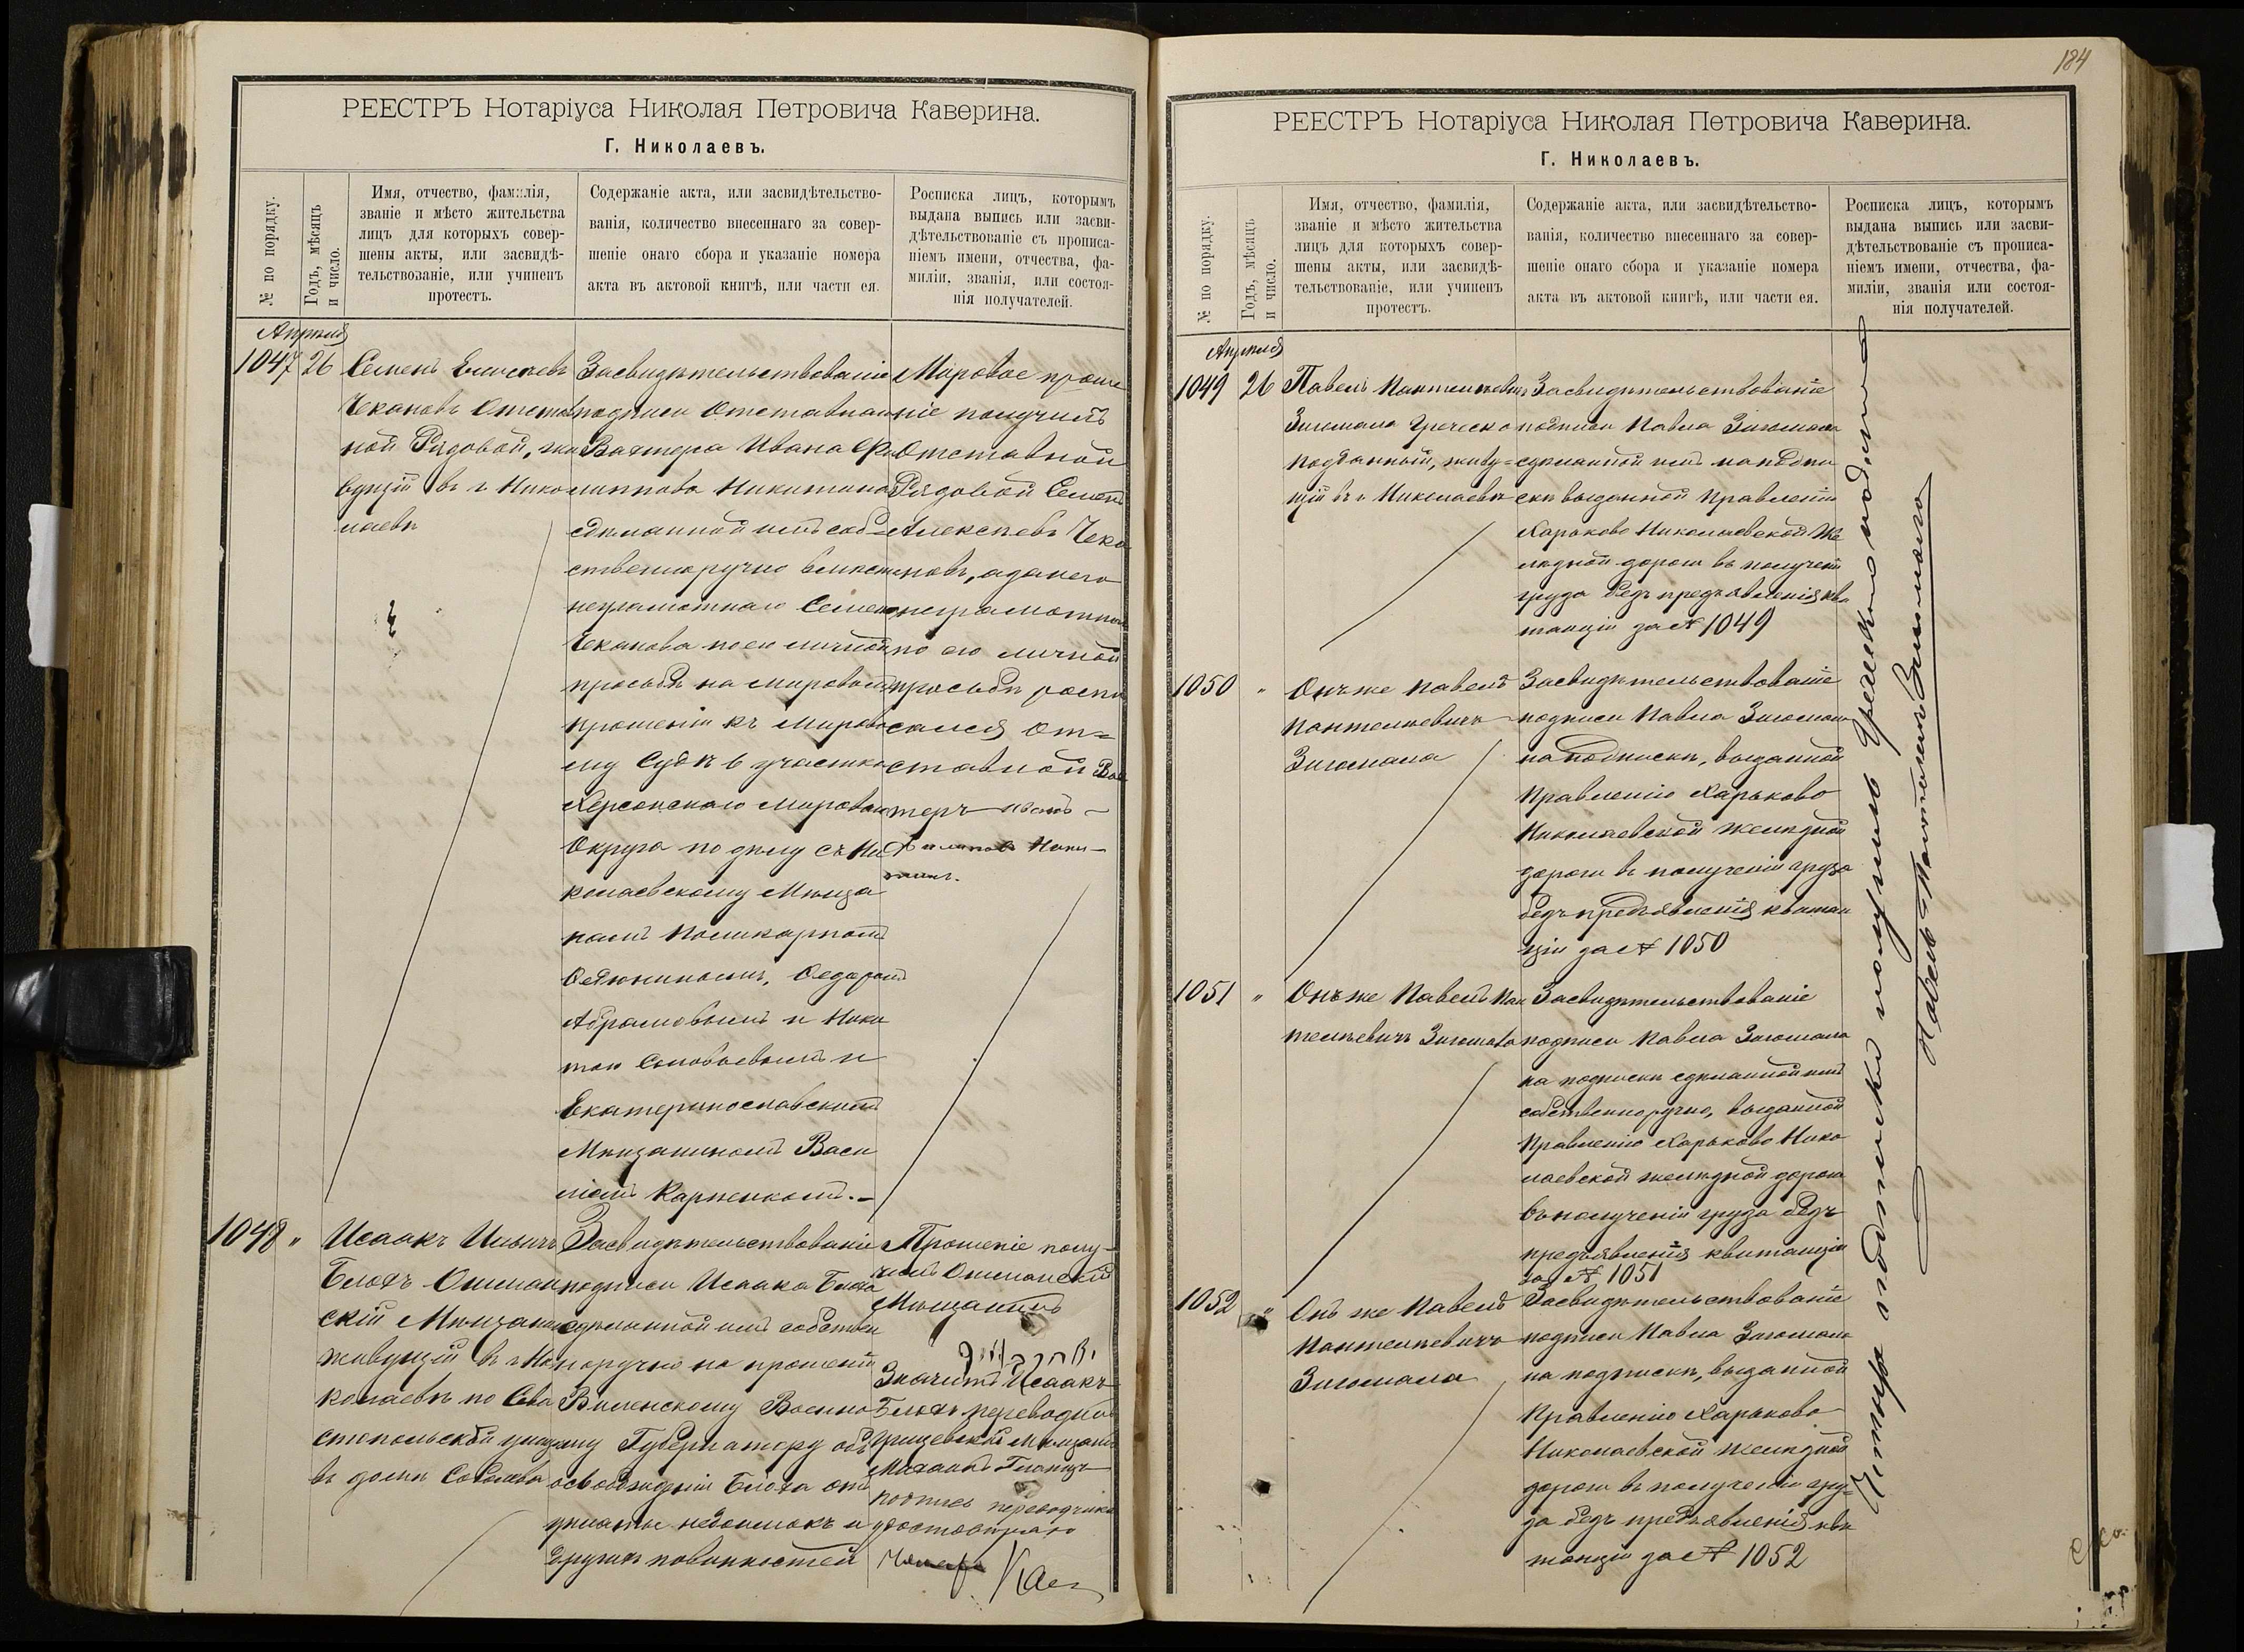 РЕЕСТРЪ Нотаріуса Николая Петровича Каверина.
Г. Николаевъ.
№ по порядку.
Годъ, мѣсяцъ
и число.
Имя, отчество, фамилія,
званіе и мѣсто жительства
лицъ для которыхъ совер-
шены акты, или засвидѣ-
тельствованіе, или учиненъ
протестъ.
Содержаніе акта, или засвидѣтельство-
ванія, количество внесеннаго за совер-
шеніе онаго сбора и указаніе номера
акта въ актовой книгѣ, или части ея.
Росписка лицъ, которымъ
выдана выпись или засви-
дѣтельствованіе съ прописа-
ніемъ имени, отчества, фа-
миліи, званія, или состоя-
нія получателей.
Апрѣля
1047 26
Семенъ
Чекановъ Отстав
ной Рядовой, жи
вущій въ г. Нико
лаевѣ
Засвидѣтельствованіе
подписи Отставнаго
Вахтера Ивана Фи
липпова Никитина
сдѣланной имъ соб-
ственноручно вмѣсто
неграмотнаго Семена
Чеканова по его личной
просьбѣ на мировомъ
прошеніи къ Мирово
му Судьѣ 6 участка
Херсонскаго Мироваго
Округа по дѣлу съ Ни
колаевскому Мѣща
намъ Поликарпомъ
Федоромъ
Абрамовымъ и Ники
тою Соловьевымъ и
Екатеринославскимъ
Мѣщаниномъ Васи
ліемъ Карпенкомъ.-
Мировое проше
ніе получилъ
Отставной
Рядовой Семенъ
Алексѣевъ Чека
новъ, а за него
неграмотнаго
по его личной
просьбѣ роспи
сался От=
ставной Вах
теръ Иванъ
Филиповъ Ники-
тинъ.
1048 "
Исаакъ
Блохъ Ошмян
скій Мѣщанинъ
живущій въ г. Ни
колаевѣ по Сева
стопольской улицѣ
въ домѣ Соболева
Засвидѣтельствованіе
подписи Исаака Блоха
сдѣланной имъ собствен
норучно на прошеніи
Виленскому Военно
му Губернатору объ
освобожденіи Блоха отъ
уплаты недоимокъ и
другихъ повинностей
Прошеніе полу-
чилъ Ошмянскій
Мѣщанинъ
Значитъ Исаакъ
Блохъ переводилъ
Мѣщанинъ
подпись переводчика
удостовѣряю
184
РЕЕСТРЪ Нотаріуса Николая Петровича Каверина.
Г. Николаевъ.
№ по порядку.
Годъ, мѣсяцъ
и число.
Имя, отчество, фамилія,
званіе и мѣсто жительства
лицъ для которыхъ совер-
шены акты, или засвидѣ-
тельствованіе, или учиненъ
протестъ.
Содержаніе акта, или засвидѣтельство-
ванія, количество внесеннаго за совер-
шеніе онаго сбора и указаніе номера
акта въ актовой книгѣ, или части ея.
Росписка лицъ, которымъ
выдана выпись или засви-
дѣтельствованіе съ прописа-
ніемъ имени, отчества, фа-
миліи, званія или состоя-
нія получателей.
Апрѣля
1049 26
Павелъ Пантелѣевичъ
Зигомала Греческо
подданный, живу=
щій въ г. Николаевѣ
Засвидѣтельствованіе
подписи Павла Зигомала
сдѣланной имъ на подпи
скѣ выданной Правленію
Харьково Николаевской Же
лѣзной дороги въ полученіи
груза безъ предъявленія кви
танціи за № 1049
1050 "
Онъ же Павелъ
Пантелѣевичъ
Зигомала
Засвидѣтельствованіе
подписи Павла Зигомала
на подпискѣ, выданной
Правленію Харьково
Николаевской желѣзной
дороги въ полученіи груза
безъ предъявленія квитан
ціи за № 1050
1051 "
Онъ же Павелъ Пан
телѣевичъ Зигомала
Засвидѣтельствованіе
подписи Павла Зигомала
на подпискѣ сдѣланной имъ
собственноручно, выданной
Правленію Харьково Нико
лаевской желѣзной дороги
въ полученіи груза безъ
предъявленія квитанціи
за № 1051
1052 "
Онъ же Павелъ
Пантелѣевичъ
Зигомала
Засвидѣтельствованіе
подписи Павла Зигомала
на подпискѣ, выданной
Правленію Харьково
Николаевской желѣзной
дороги въ полученіи гру=
за безъ предъявленія кви
танціи за № 1052
Четыре подписки получилъ Греческо подданный
Павелъ Зигомала